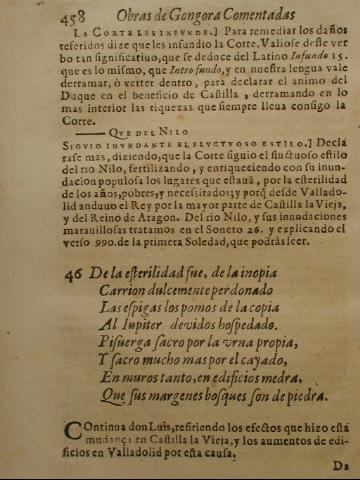 458 Obras de Gongora Comentadas
LA CORTE LES INFVNDE.] Para remediar los daños
referidos dize que les infundio la Corte. Valiose deste ver
bo tan significatiuo, que se deduce del Latino Infundo is.
que es lo mismo, que Intro fundo, y en nuestra lengua vale
derramar, ò verter dentro, para declarar el animo del
Duque en el beneficio de Castilla, derramando en lo
mas interior las riquezas que siempre lleua consigo la
Corte.
QVE DEL NILO
SIGVIO INVNDANTE EL FLVCTVOSO ESTILO.] Decla
rase mas, diziendo, que la Corte siguio el fluctuoso estilo
del rio Nilo, fertilizando, y enriqueciendo con su inun-
dacion populosa los lugares que estauã, por la esterilidad
de los años, pobres, y necesitados; y porq̃ desde Vallado-
lid anduuo el Rey por la mayor parte de Castilla la Vieja,
y del Reino de Aragon. Del rio Nilo, y sus inundaciones
marauillosas tratamos en el Soneto 26. y explicando el
verso 990. de la primera Soledad, que podràs leer.
46 De la esterilidad fue, de la inopia
Carrion dulcemente perdonado
Las espigas los pomos de la copia
Al Iupiter devidos hospedado.
Pisuerga sacro por la vrna propia,
Y sacro mucho mas por el cayado,
En muros tanto, en edificios medra,
Que sus margenes bosques son de piedra.
Continua don Luis, refiriendo los efectos que hizo esta
mudança en Castilla la Vieja, y los aumentos de edi-
ficios en Valladolid por esta causa.
Da